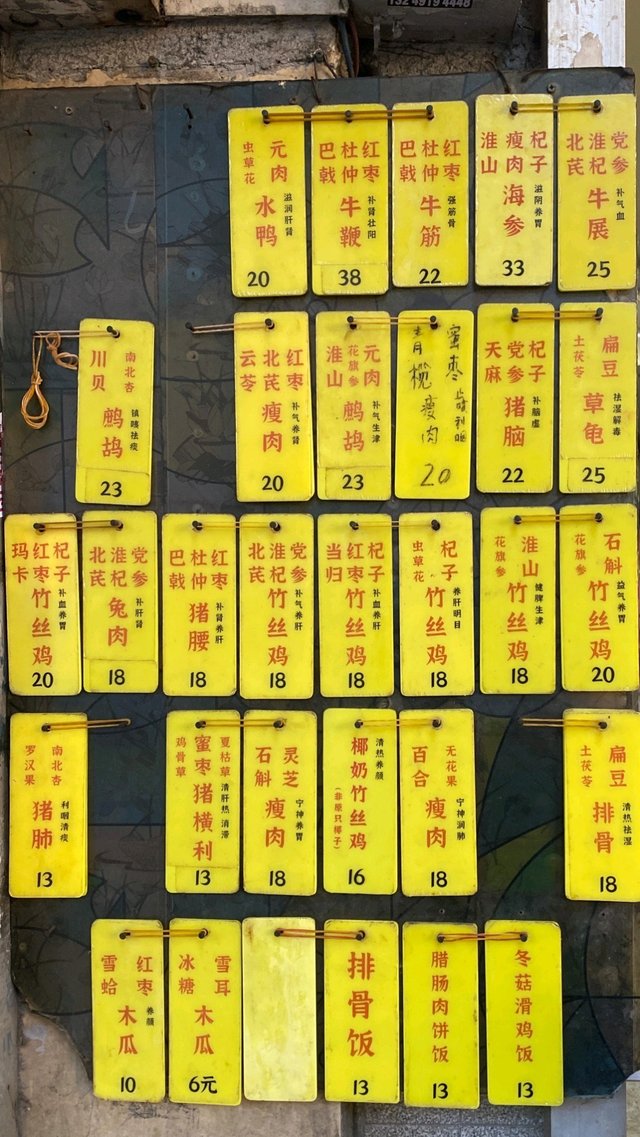 元肉
虫草花
水鸭
滋润肝肾
20
红枣
杜仲
巴戟
牛鞭
补肾壮阳
38
红枣
杜仲
巴戟
牛筋
强筋骨
22
杞子
瘦肉
淮山
海参
滋阴养胃
33
党参
淮杞
北芪
牛展
补气血
25
南北杏
川贝
鹧鸪
镇咳祛痰
23
红枣
北芪
云苓
瘦肉
补气养肾
20
元肉
花旗参
淮山
鹧鸪
补气生津
23
蜜枣
青榄
瘦肉
20
杞子
党参
天麻
猪脑
补脑虚
22
扁豆
土茯苓
草龟
祛湿解毒
25
杞子
红枣
玛卡
竹丝鸡
补血养胃
20
党参
淮杞
北芪
兔肉
补肝肾
18
红枣
杜仲
巴戟
猪腰
补肾养肝
18
党参
淮杞
北芪
竹丝鸡
补气养肝
18
杞子
红枣
当归
竹丝鸡
补血养肝
18
杞子
虫草花
竹丝鸡
养肝明目
18
淮山
花旗参
竹丝鸡
健脾生津
18
石斛
花旗参
竹丝鸡
益气养胃
20
南北杏
罗汉果
猪肺
利咽清痰
13
夏枯草
蜜枣
鸡骨草
猪横利
清肝热 消滞
13
灵芝
石斛
瘦肉
宁神养胃
18
清热养颜
椰奶竹丝鸡
(非原只椰子)
16
无花果
百合
瘦肉
宁神润肺
18
扁豆
土茯苓
排骨
清热祛湿
18
红枣
雪蛤
木瓜
养颜
10
雪耳
冰糖
木瓜
6元
排骨饭
13
腊肠肉饼饭
13
冬菇滑鸡饭
13